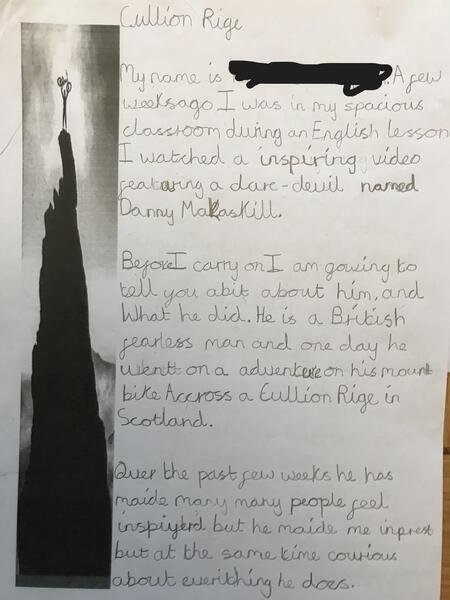 Cullion Rige
My name is . A few
weeks ago I was in my spacious
classroom during an English lesson
I watched a inspiring video
featuring a dare-devil named
Danny MaKaskill.
Before I carry on I am gowing to
tell you abit about him, and
What he did. He is a British
fearless man and one day he
went on a adventure on his mount
bike Accross a Cullion Rige in
Scotland.
Over the past few weeks he has
maide many many people feel
inspiyerd but he maide me inprest
but at the same time courious
about everithing he does.